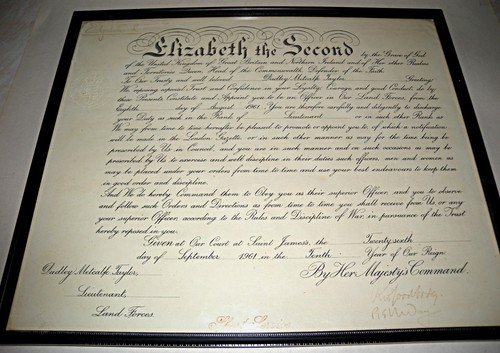 Elizabeth the Second by the Grace of God
of the United Kingdom of Great Britain and Northern Ireland and of Her other Realms
and Territories Queen, Head of the Commonwealth, Defender of the Faith.
To Our Trusty and well beloved Dudley Metcalfe Taylor, Greeting!
We reposing especial Trust and Confidence in your Loyalty, Courage, and good Conduct, do by
these Presents Constitute and Appoint you to be an Officer in Our Land Forces from the
Eighth day of August 1961. You are therefore carefully and diligently to discharge
your Duty as such in the Rank of Lieutenant or in such other Rank as
We may from time to time hereafter be pleased to promote or appoint you to, of which a notification
will be made in the London Gazette, or in such other manner as may for the time being be
prescribed by Us in Council, and you are in such manner and on such occasions as may be
prescribed by Us to exercise and well discipline in their duties such officers, men and women as
may be placed under your orders from time to time and use your best endeavours to keep them
in good order and discipline.
And We do hereby Command them to Obey you as their superior Officer, and you to observe
and follow such Orders and Directions as from time to time you shall receive from Us, or any
your superior Officer, according to the Rules and Discipline of War, in pursuance of the Trust
hereby reposed in you.
Given at Our Court at Saint James's, the Twenty-sixth
day of September 1961 in the Tenth Year of Our Reign
By Her Majesty's Command.
Dudley Metcalfe Taylor,
Lieutenant,
Land Forces.